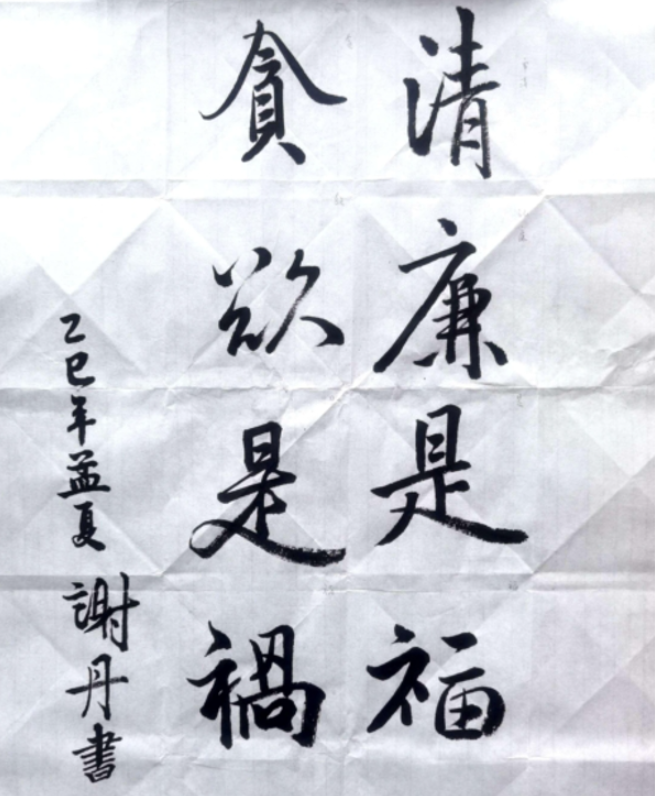 清廉是福
貪欲是禍
乙巳年孟夏 謝丹書